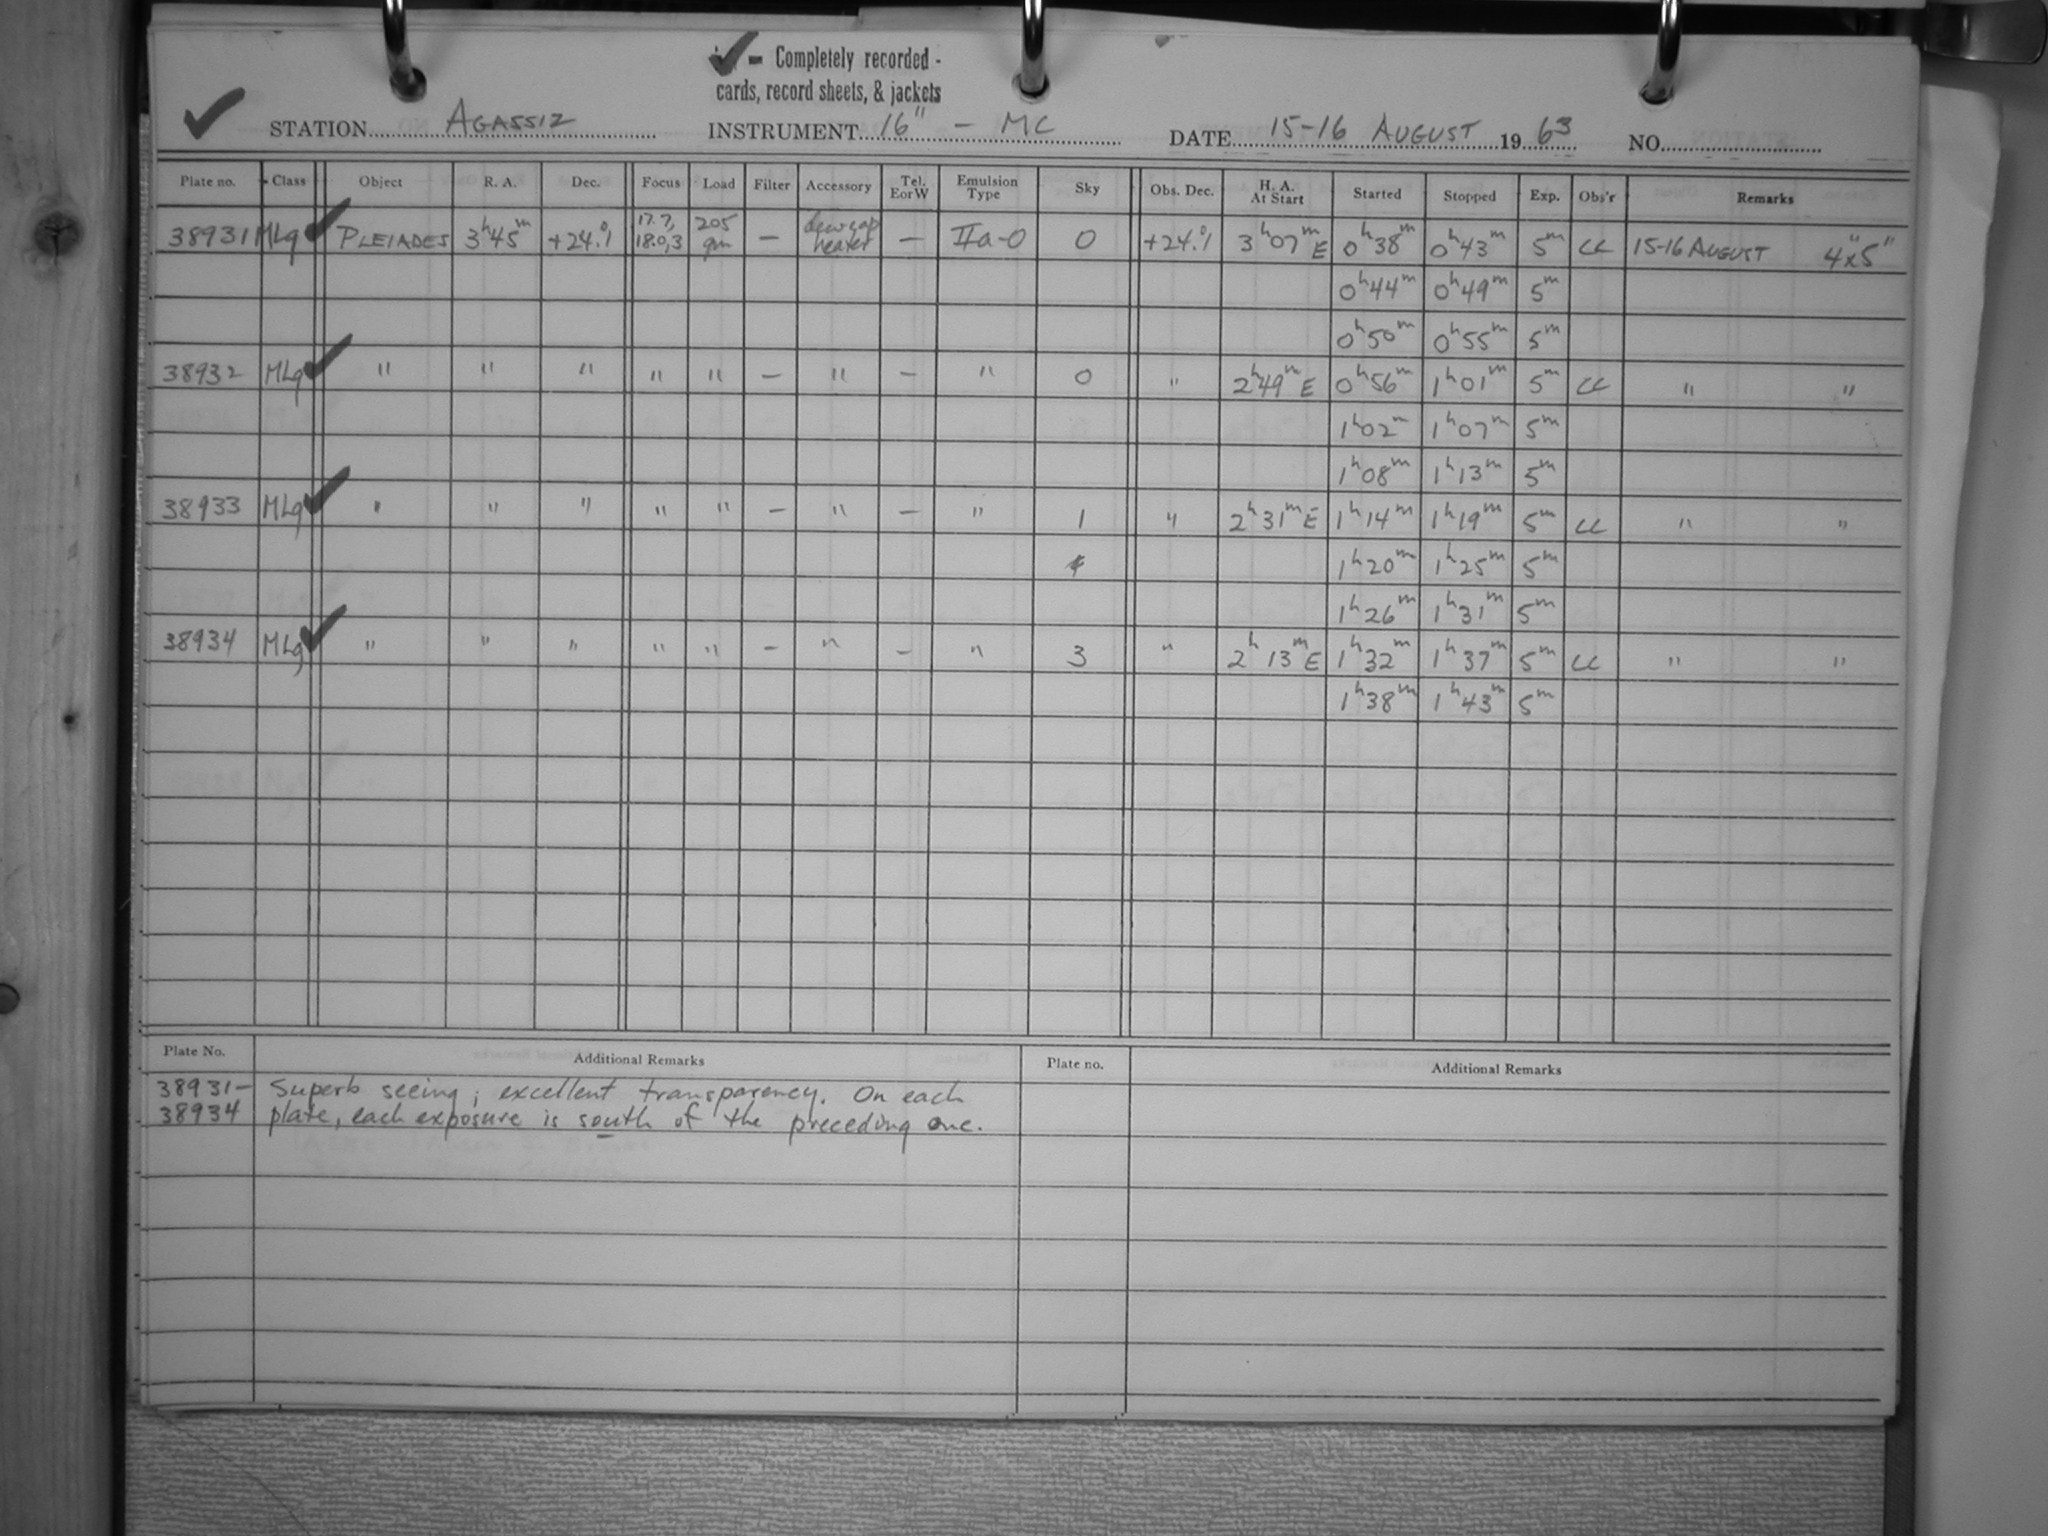 ✓ - Completely recorded -
cards, record sheets, & jackets
✓ STATION AGASSIZ INSTRUMENT 16" - MC DATE 15-16 AUGUST 1963 NO.
Plate no. Class Object R. A. Dec. Focus Load Filter Accessory Tel. E or W Emulsion Type Sky Obs. Dec. H. A. At Start Started Stopped Exp. Obs'r Remarks
38931 MLg ✓ PLEIADES 3h45m +24.°1 17.7, 18.0,3 205 gm — dewcap heater — IIa-O 0 +24.°1 3h07m E 0h38m 0h43m 5m CC 15-16 AUGUST 4"x5"
0h44m 0h49m 5m
0h50m 0h55m 5m
38932 MLg ✓ " " " " " — " — " 0 " 2h49m E 0h56m 1h01m 5m CC " "
1h02m 1h07m 5m
1h08m 1h13m 5m
38933 MLg ✓ " " " " " — " — " 1 " 2h31m E 1h14m 1h19m 5m CC " "
1h20m 1h25m 5m
1h26m 1h31m 5m
38934 MLg ✓ " " " " " — " — " 3 " 2h13m E 1h32m 1h37m 5m CC " "
1h38m 1h43m 5m
Plate No. Additional Remarks Plate no. Additional Remarks
38931- Superb seeing; excellent transparency. On each
38934 plate, each exposure is south of the preceding one.